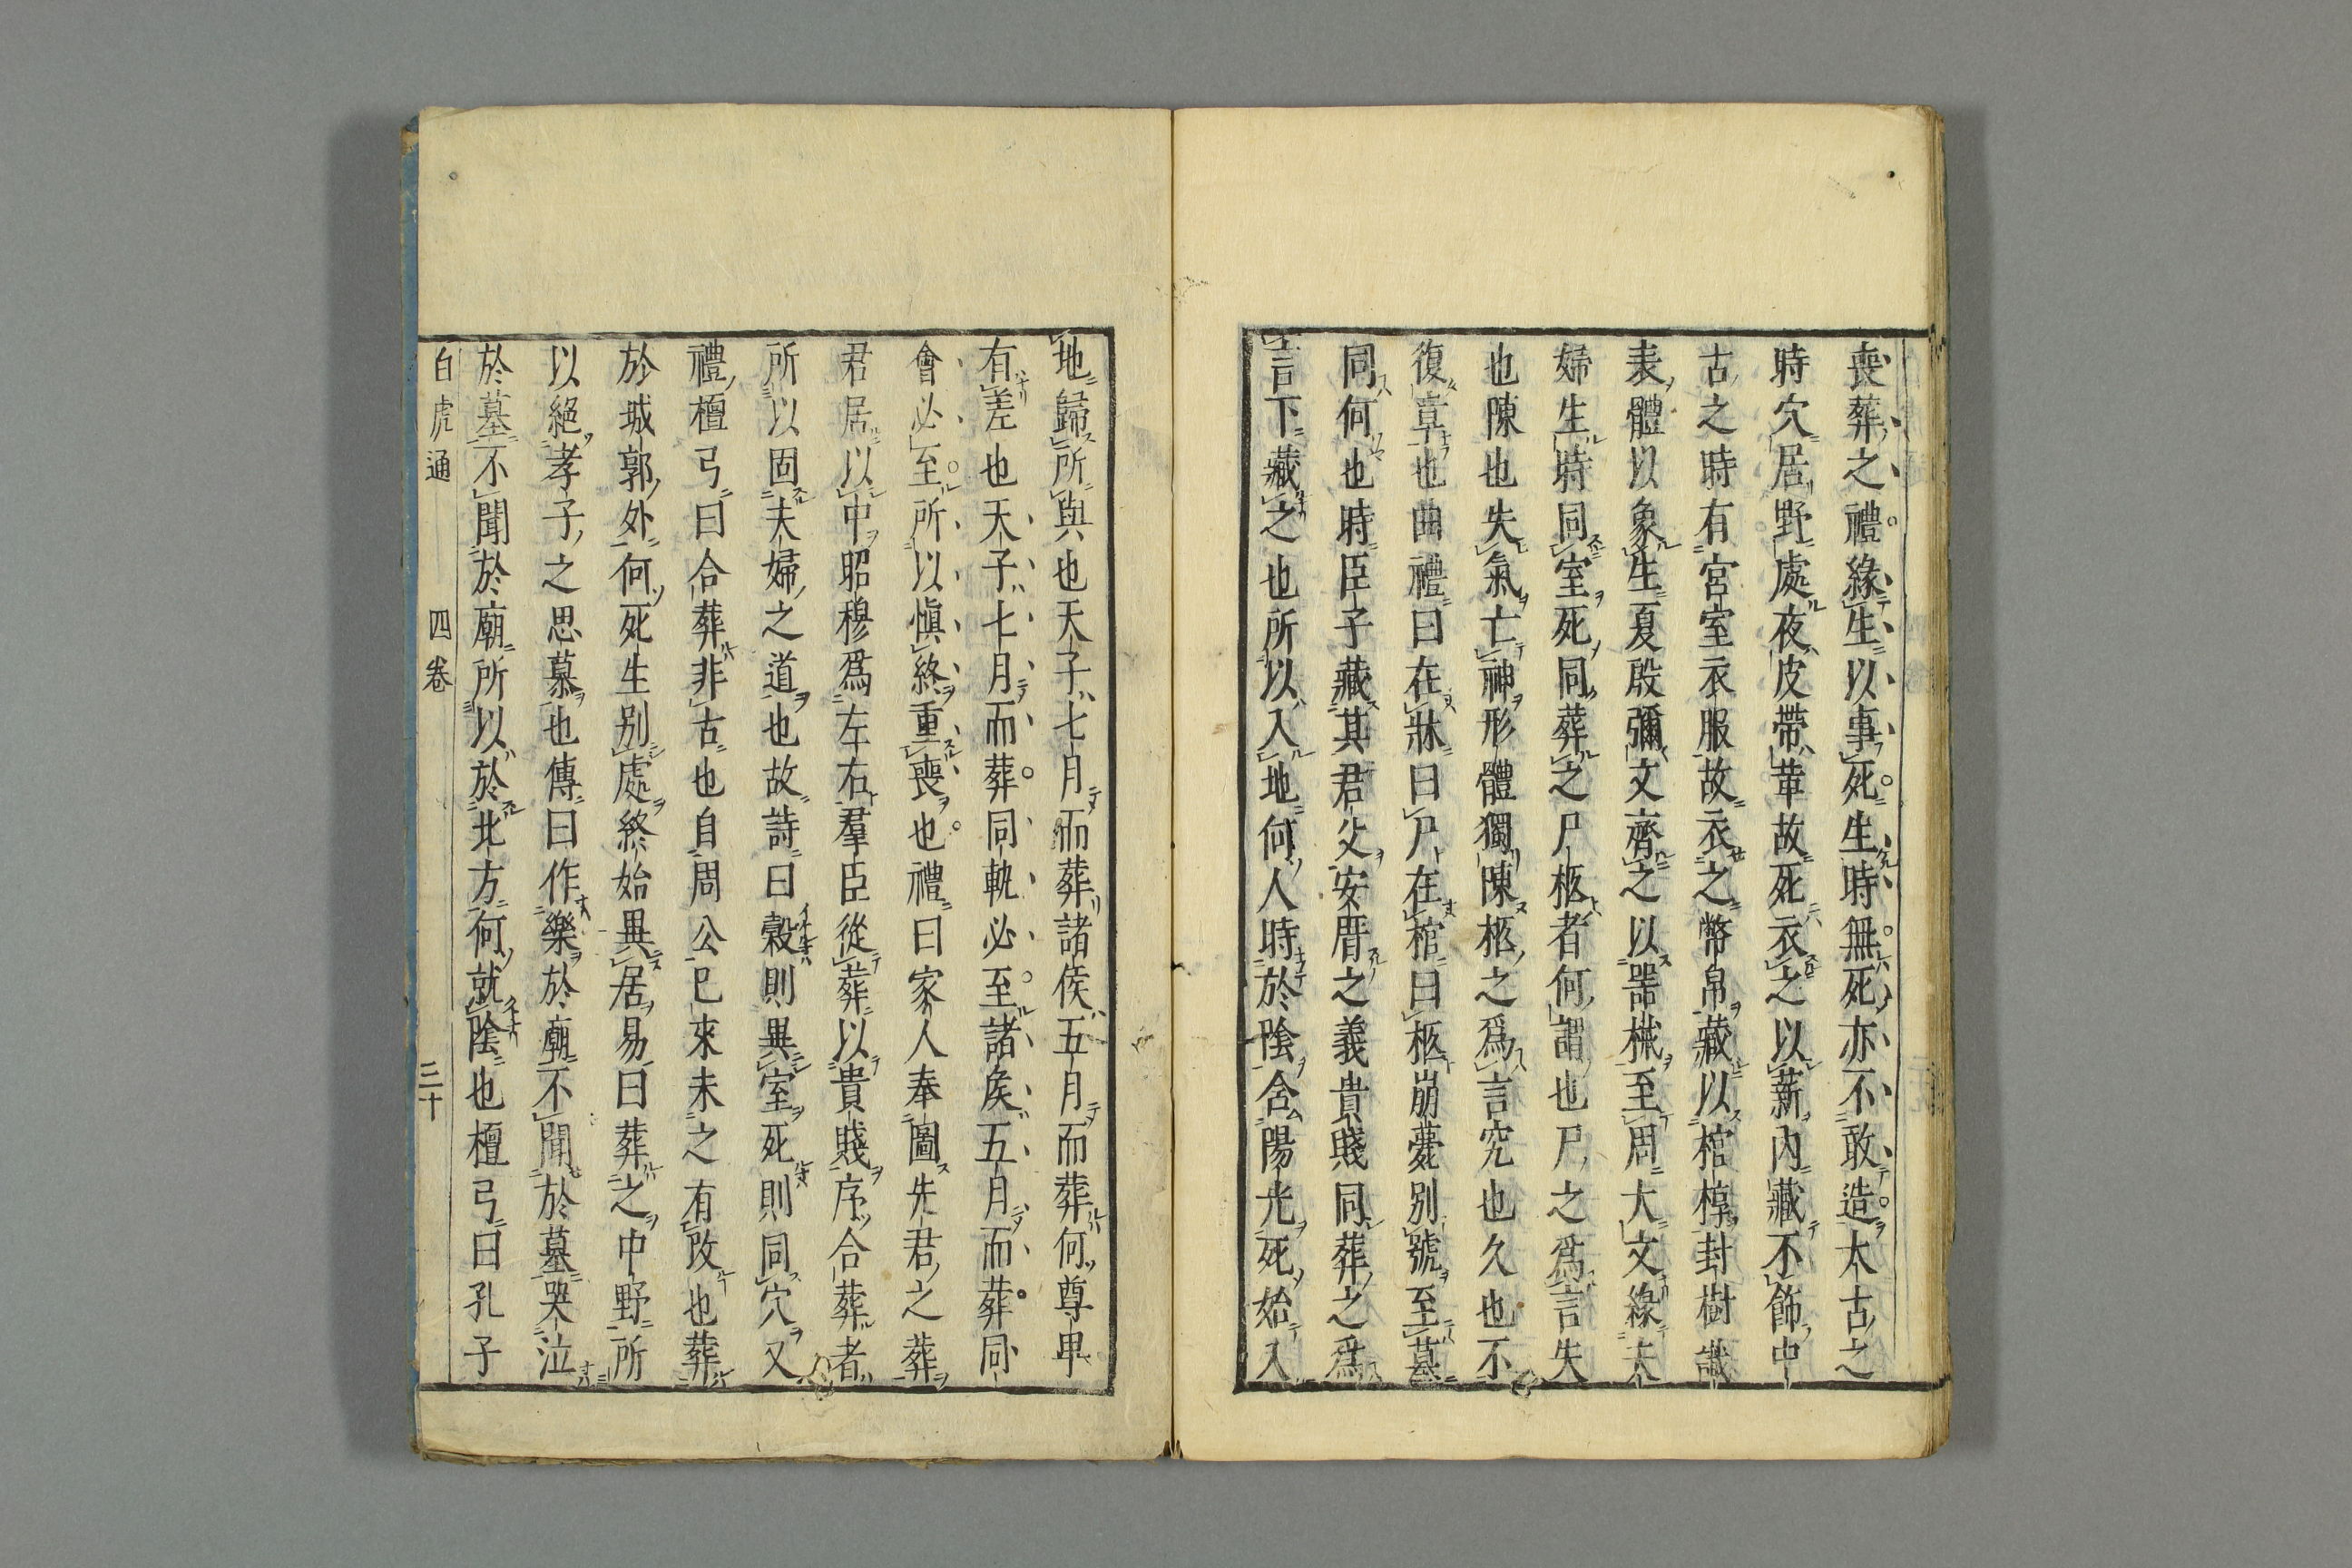 喪葬之禮緣生以事死生時無死亦不敢造太古之
時穴居野處夜皮帶革故死衣之以薪內藏不飾中
古之時有宮室衣服故衣之幣帛藏以棺椁封樹識
表體以象生夏殷彌文齊之以器械至周大文緣夫
婦生時同室死同葬之尸柩者何謂也尸之爲言失
也陳也失氣亡神形體獨陳柩之爲言究也久也不
復章也曲禮曰在牀曰尸在棺曰柩崩薨別號至墓
同何也時臣子藏其君父安厝之義貴賤同葬之爲
言下藏之也所以入地何人時於陰含陽光死始入
地歸所與也天子七月而葬諸侯五月而葬何尊卑
有差也天子七月而葬同軌必至諸矦五月而葬同
會必至所以慎終重喪也禮曰家人奉圖先君之葬
君居以中昭穆爲左右羣臣從葬以貴賤序合葬者
所以固夫婦之道也故詩曰穀則異室死則同穴又
禮檀弓曰合葬非古也自周公已來未之有改也葬
於城郭外何死生別處終始異居易曰葬之中野所
以絕孝子之思慕也傳曰作樂於廟不聞於墓哭泣
於墓不聞於廟所以於北方何就陰也檀弓曰孔子
白虎通 四卷 三十